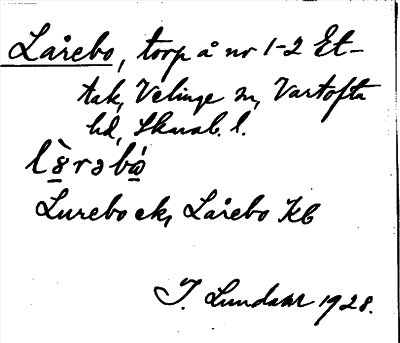 Lårebo, torp å nr 1-2 Et-
tak, Velinge sn, Vartofta
hd, Skarab. l.
Lurebo ek, Lårebo KB
J. Lundahl 1928.